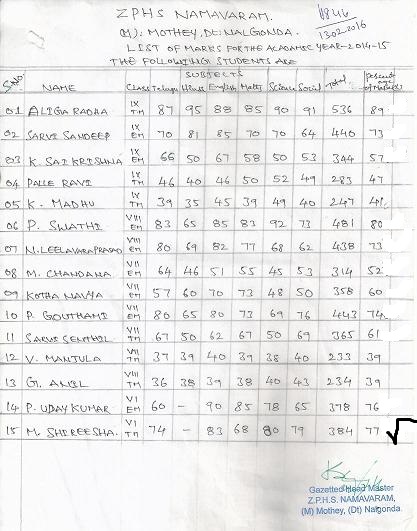 ZPHS NAMAVARAM.
(M): MOTHEY, Dt: NALGONDA.
1302-2016
LIST OF MARKS FOR THE ACADAMIC YEAR-2014-15
THE FOLLOWING STUDENTS ARE
SUBJECTS
S.NO NAME Class Telugu Hindi English Maths Science Social Total Percentage of Marks
01 ALIGA RADHA IX TM 87 95 88 85 90 91 536 89
02 SARVI SANDEEP IX EM 70 81 85 70 70 64 440 73
03 K. SAI KRISHNA IX EM 66 50 67 58 50 53 344 57
04 PALLE RAVI IX TM 46 40 46 50 52 49 283 47
05 K. MADHU IX TM 39 35 45 39 49 40 247 41
06 P. SWATHI VIII EM 83 65 85 83 92 73 481 80
07 N. LEELAVARAPRASAD VII EM 80 69 82 77 68 62 438 73
08 M. CHANDANA VIII EM 64 46 51 55 45 53 314 52
09 KOTHA NAVYA VII EM 57 60 70 73 48 50 358 60
10 P. GOUTHAMI VIII EM 80 65 80 73 69 76 443 74
11 SARVI SENTHIL VII TM 67 50 62 67 50 69 365 61
12 V. MANJULA VIII TM 37 39 40 39 38 40 233 39
13 G. ANIL VIII TM 36 38 39 38 40 43 234 39
14 P. UDAY KUMAR VI EM 60 - 90 85 78 65 378 76
15 M. SHIREESHA. VI TM 74 - 83 68 80 79 384 77
Gazetted Head Master
Z.P.H.S. NAMAVARAM,
(M) Mothey, (Dt) Nalgonda.